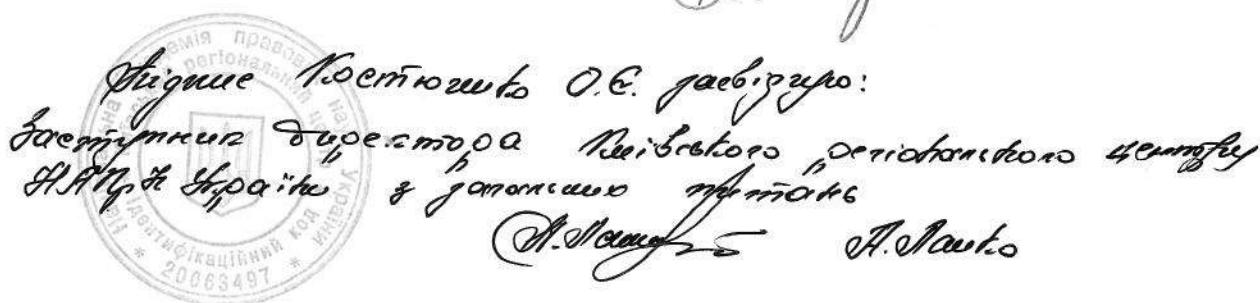 Підпис Костюченко О.Є. засвідчую:
Заступник директора Київського регіонального центру
НАПрН України з загальних питань
регіональний
Україна
ідентифікаційний код
* 20063497 *